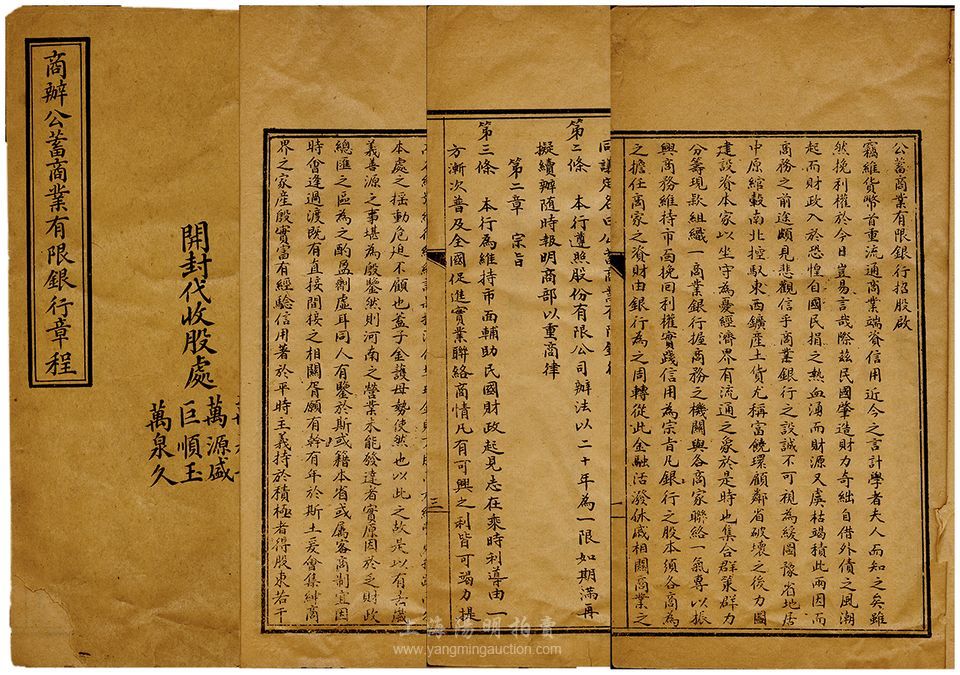 商辦公蓄商業有限銀行章程
開封代收股處
萬源盛
巨順玉
萬泉久
公蓄商業有限銀行招股啟
竊維貨幣首重流通商業端資信用近今之言計學者夫人而知之矣雖
然挽利權於今日豈易言哉際茲民國肇造財力奇絀自借外債之風潮
起而財政入於恐惶自國民捐之熱血湧而財源又虞枯竭積此兩因而
商務之前途頗見悲觀信乎商業銀行之設誠不可視為緩圖豫省地居
中原綰轂南北控馭東西鑛產土貨尤稱富饒環顧鄰省破壞之後力圖
建設資本家以坐守為憂經濟界有流通之象於是時也集合群策群力
分籌現款組織一商業銀行握商務之機關與各商家聯絡一氣專以振
興商務維持市面挽回利權實踐信用為宗旨凡銀行之股本須各商為
之擔任商家之資財由銀行為之周轉從此金融活潑休戚相關商業之
一
第二條 本行遵照股份有限公司辦法以二十年為一限如期滿再
擬續辦隨時報明商部以重商律
第二章 宗旨
第三條 本行為維持市面輔助民國財政起見志在乘時利導由一
方漸次普及全國促進實業聯絡商情凡有可興之利皆可竭力提
三
本處之搖動危迫不顧也蓋子金護母勢使然也以此之故是以有去歲
義善源之事堪為殷鑒然則河南之營業未能發達者實原因於乏財政
總匯之區為之酌盈劑虛耳同人有鑒於斯或籍本省或屬客商制宜因
時會逢過渡既有直接間接之相關胥願有幹有年於斯土爰會集紳商
界之家產殷實富有經驗信用著於平時主義持於積極者得股東若干
上海陽明拍賣
www.yangmingauction.com